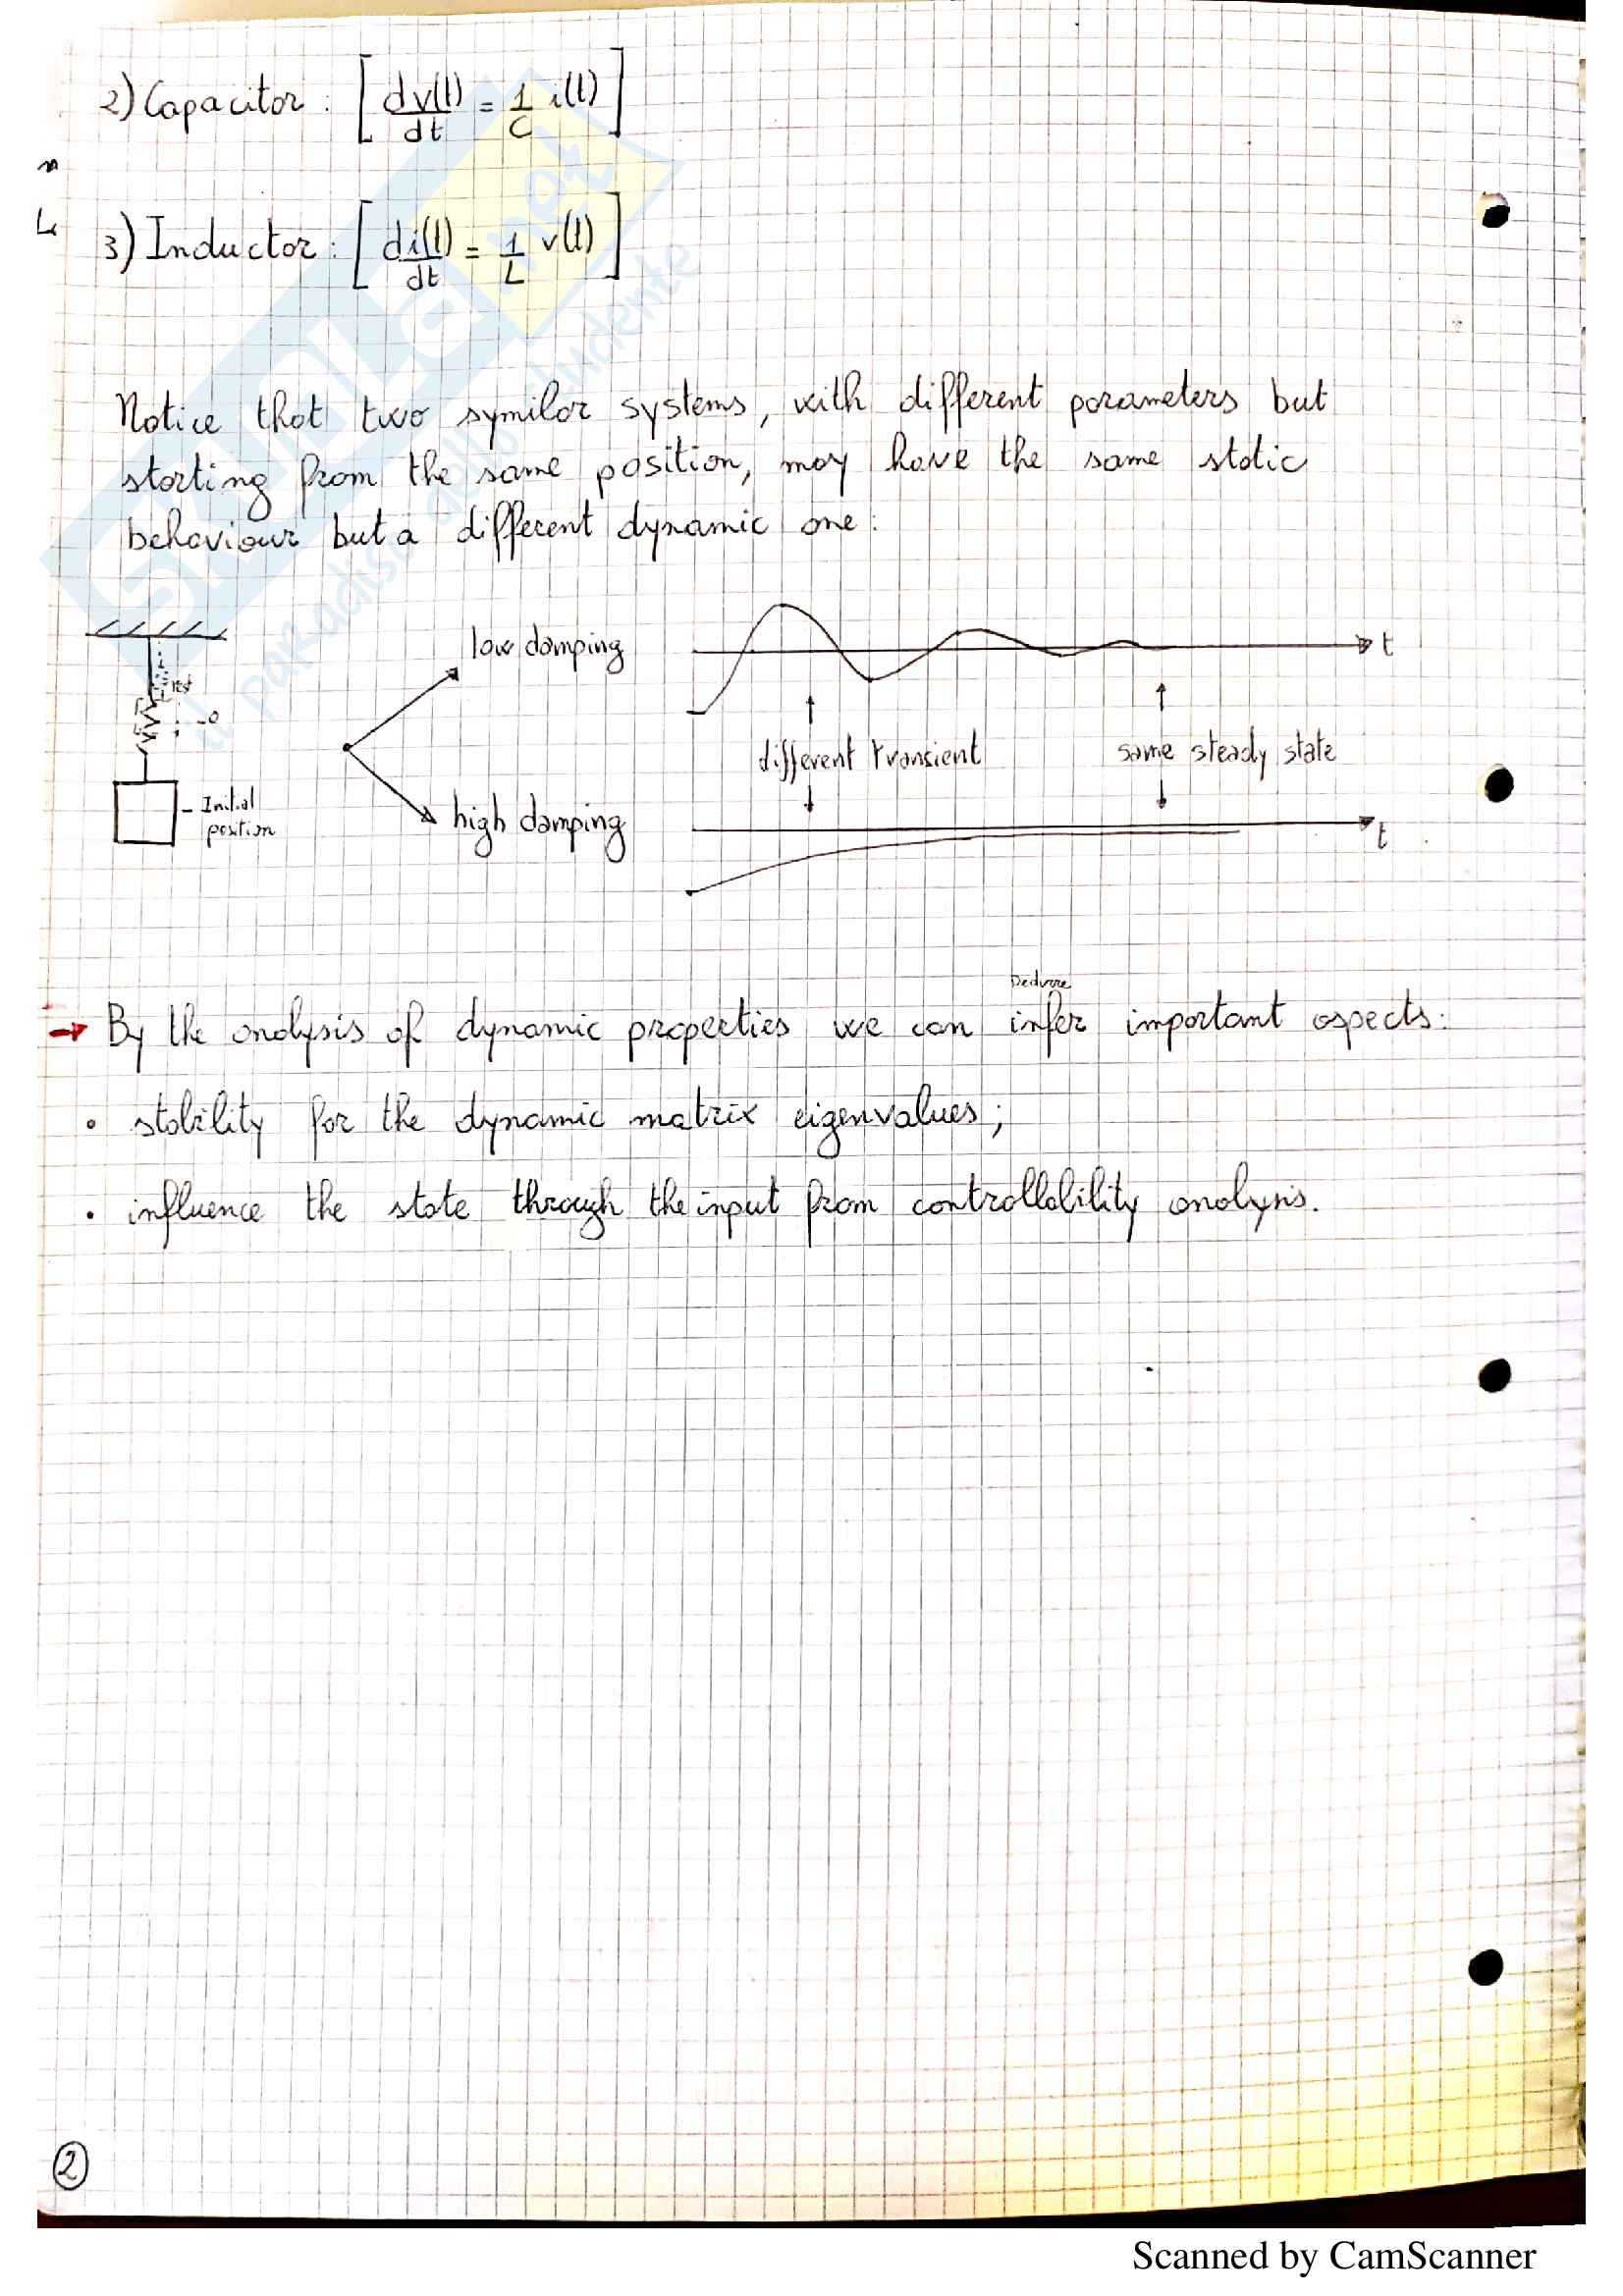 2) Capacitor : [ dv(t)/dt = 1/C i(t) ]
3) Inductor : [ di(t)/dt = 1/L v(t) ]
Notice that two symilar systems, with different parameters but
starting from the same position, may have the same static
behaviour but a different dynamic one :
low damping
t
rest
0
different transient
same steady state
Initial
position
high damping
t
Dedurre
→ By the analysis of dynamic properties we can infer important aspects:
• stability for the dynamic matrix eigenvalues;
• influence the state through the input from controllability analysis.
2
SKUOLA.net
il paradiso dello studente
Scanned by CamScanner